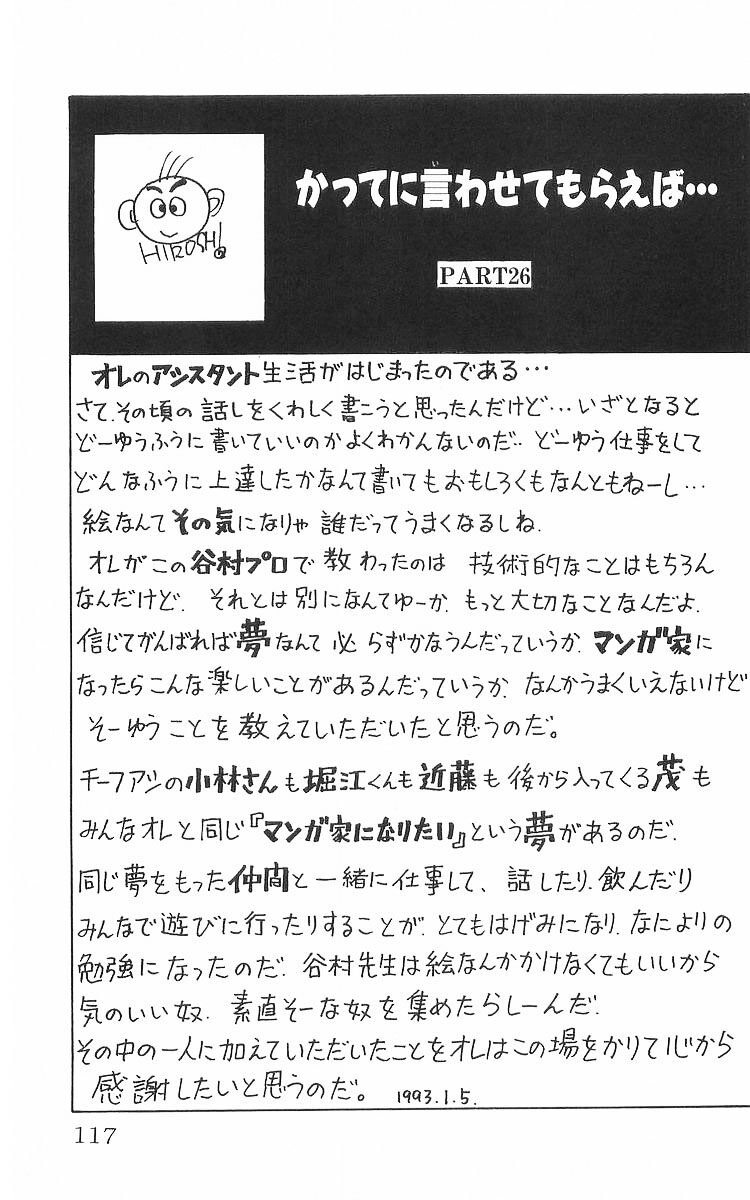 HIROSHI!
かってに言わせてもらえば…
PART26
オレのアシスタント生活がはじまったのである…
さて、その頃の話しをくわしく書こうと思ったんだけど…いざとなると
どーゆうふうに書いていいのかよくわかんないのだ‥どーゆう仕事をして
どんなふうに上達したかなんて書いてもおもしろくもなんともねーし…
絵なんてその気になりゃ誰だってうまくなるしね.
オレがこの谷村プロで教わったのは 技術的なことはもちろん
なんだけど. それとは別になんてゆーか. もっと大切なことなんだよ.
信じてがんばれば夢なんて必らずかなうんだっていうか. マンガ家に
なったらこんな楽しいことがあるんだっていうか. なんかうまくいえないけど
そーゆうことを教えていただいたと思うのだ。
チーフアシの小林さんも堀江くんも近藤も後から入ってくる茂も
みんなオレと同じ『マンガ家になりたい』という夢があるのだ.
同じ夢をもった仲間と一緒に仕事して、話したり.飲んだり
みんなで遊びに行ったりすることが.とてもはげみになり.なによりの
勉強になったのだ.谷村先生は絵なんかかけなくてもいいから
気のいい奴.素直そーな奴を集めたらしーんだ.
その中の一人に加えていただいたことをオレはこの場をかりて心から
感謝したいと思うのだ。 1993.1.5.
117